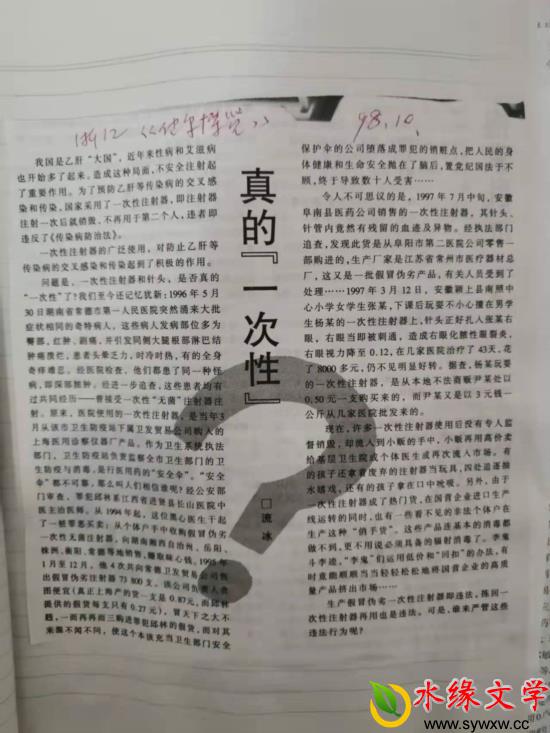 浙江《
98.10.
我国是乙肝“大国”，近年来性病和艾滋病
也开始多了起来。造成这种局面，不安全注射起
了重要作用。为了预防乙肝等传染病的交叉感
染和传染，国家采用了一次性注射器，即注射器
注射一次后就销毁、不再用于第二个人，违者即
违反了《传染病防治法》。
一次性注射器的广泛使用，对防止乙肝等
传染病的交叉感染和传染起到了积极的作用。
问题是，一次性注射器和针头，是否真的
“一次性”了？我们至今还记忆犹新：1996年5月
30日湖南省常德市第一人民医院突然涌来大批
症状相同的奇特病人，这些病人发病部位多为
臀部，红肿、剧痛，并引发同侧大腿根部淋巴结
肿痛溃烂，患者头晕乏力，时冷时热，有的全身
奇痒难忍。经医院检查，他们都患了同一种怪
病，即深部脓肿。经进一步追查，这些患者均有
过共同经历——曾接受一次性“无菌”注射器注
射。原来，医院使用的一次性注射器，是当年3
月从该市卫生防疫站下属卫发贸易公司购入的
上海医用诊察仪器厂产品。作为卫生系统执法
部门，卫生防疫站负责监督全市卫生部门的卫
生防疫与消毒，是行医用药的“安全伞”。“安全
伞”都不可靠，那么叫人们相信谁呢？经公安部
门审查，罪犯邱林系江西省进贤县长山医院中
医主治医师。从1994年起，这位黑心医生干起
了一桩罪恶买卖：从个体户手中收购假冒伪劣
一次性无菌注射器，向湖南湘西自治州、岳阳、
株洲、衡阳、常德等地销售，赚取昧心钱。1995年
1月至12月，他4次共向常德卫发贸易公司售
出假冒伪劣注射器73 800支。该公司负责人贪
图便宜（真正上海产的货一支是0.87元，而邱林
提供的假货每支只有0.27元），冒天下之大不
韪，一而再再而三购进罪犯邱林的假货，而对其
来源不闻不问，使这个本该充当卫生部门安全
真的『一次性』
？
□流冰
保护伞的公司堕落成罪犯的销赃点，把人民的身
体健康和生命安全抛在了脑后，置党纪国法于不
顾，终于导致数十人受害……
令人不可思议的是，1997年7月中旬，安徽
阜南县医药公司销售的一次性注射器，其针头、
针管内竟然有残留的血迹及异物。经执法部门
追查，发现此货是从阜阳市第二医院公司零售一
部购进的，生产厂家是江苏省常州市医疗器材总
厂，这又是一批假冒伪劣产品，有关人员受到了
处理……1997年3月12日，安徽颍上县南照中
心小学女学生张某，下课后玩耍不小心撞在男学
生杨某的一次性注射器上，针头正好扎入张某右
眼，右眼当即被刺通，造成右眼化脓性眼裂炎，
右眼视力降至0.12，在几家医院治疗了43天，花
了8000多元，仍不见明显好转。据查，杨某玩耍
的一次性注射器，是从本地不法商贩尹某处以
0.50元一支购买来的，而尹某又是以3元钱一
公斤从几家医院批发来的。
现在，许多一次性注射器使用后没有专人监
督销毁，却流入到小贩的手中，小贩再用高价卖
给基层卫生院或个体医生或再次流入市场。有
的孩子还拿着废弃的注射器当玩具，四处追逐抽
水嬉戏，还有的孩子拿在口中吮吸。另外，由于
一次性注射器成了热门货，在国营企业进口生产
线运转的同时，也有一些看不见的非法个体户在
生产这种“俏手货”。这些产品连基本的消毒都
做不到，更不用说必须具备的辐射消毒了。“李鬼”
斗李逵，“李鬼”们运用低价和“回扣”的办法，有
时竟能顺顺当当轻轻松松地将国营企业的高质
量产品挤出市场……
生产假冒伪劣一次性注射器即违法，陈回一
次性注射器再用也是违法。可是，谁来严管这些
违法行为呢？
水缘文学
www.sywxw.cc